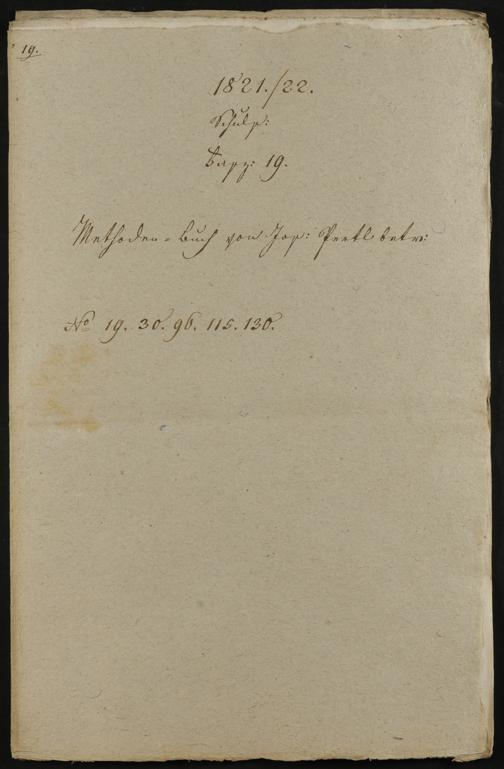 19.
1821./22.
Schulp:
Fasz: 19.
Methoden-Buch von Jos: Peitl betr:
No 19. 30. 96. 115. 130.